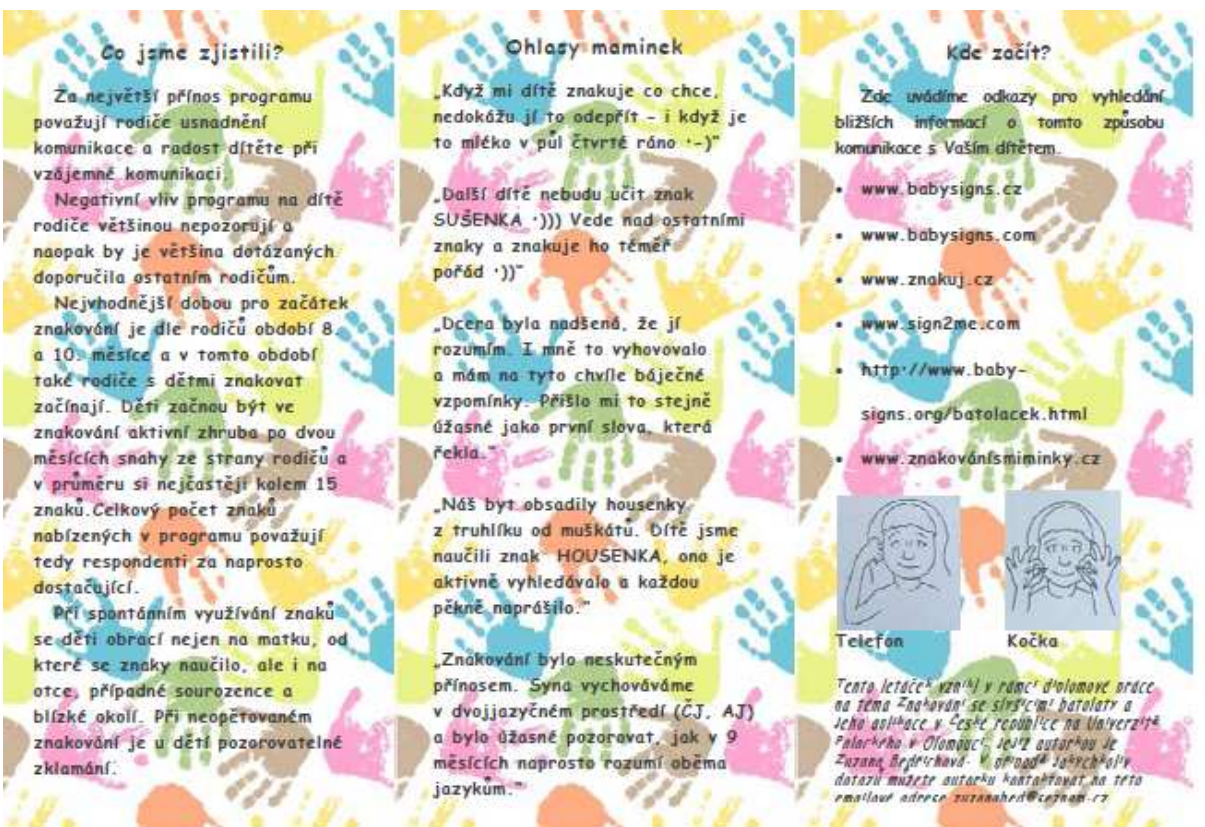 Co jsme zjistili?
Za největší přínos programu
považují rodiče usnadnění
komunikace a radost dítěte při
vzájemné komunikaci.
Negativní vliv programu na dítě
rodiče většinou nepozorují a
naopak by je většina dotázaných
doporučila ostatním rodičům.
Nejvhodnější dobou pro začátek
znakování je dle rodičů období 8.
a 10. měsíce a v tomto období
také rodiče s dětmi znakovat
začínají. Děti začnou být ve
znakování aktivní zhruba po dvou
měsících snahy ze strany rodičů a
v průměru si nejčastěji kolem 15
znaků.Celkový počet znaků
nabízených v programu považují
tedy respondenti za naprosto
dostačující.
Při spontánním využívání znaků
se děti obrací nejen na matku, od
které se znaky naučilo, ale i na
otce, případné sourozence a
blízké okolí. Při neopětovaném
znakování je u dětí pozorovatelné
zklamání.
Ohlasy maminek
„Když mi dítě znakuje co chce,
nedokážu jí to odepřít – i když je
to mléko v půl čtvrté ráno :-)"
„Další dítě nebudu učit znak
SUŠENKA :))) Vede nad ostatními
znaky a znakuje ho téměř
pořád :))"
„Dcera byla nadšená, že jí
rozumím. I mně to vyhovovalo
a mám na tyto chvíle báječné
vzpomínky. Přišlo mi to stejně
úžasné jako první slova, která
řekla."
„Náš byt obsadily housenky
z truhlíku od muškátů. Dítě jsme
naučili znak HOUSENKA, ono je
aktivně vyhledávalo a každou
pěkně naprášilo."
„Znakování bylo neskutečným
přínosem. Syna vychováváme
v dvojjazyčném prostředí (ČJ, AJ)
a bylo úžasné pozorovat, jak v 9
měsících naprosto rozumí oběma
jazykům."
Kde začít?
Zde uvádíme odkazy pro vyhledání
bližších informací o tomto způsobu
komunikace s Vaším dítětem.
• www.babysigns.cz
• www.babysigns.com
• www.znakuj.cz
• www.sign2me.com
• http://www.baby-
signs.org/batolacek.html
• www.znakovánísmiminky.cz
Telefon Kočka
Tento letáček vznikl v rámci diplomové práce
na téma Znakování se slyšícími batolaty a
jeho aplikace v České republice na Univerzitě
Palackého v Olomouci, jejíž autorkou je
Zuzana Bedřichová. V případě jakýchkoliv
dotazů můžete autorku kontaktovat na této
emailové adrese zuzanabed@seznam.cz